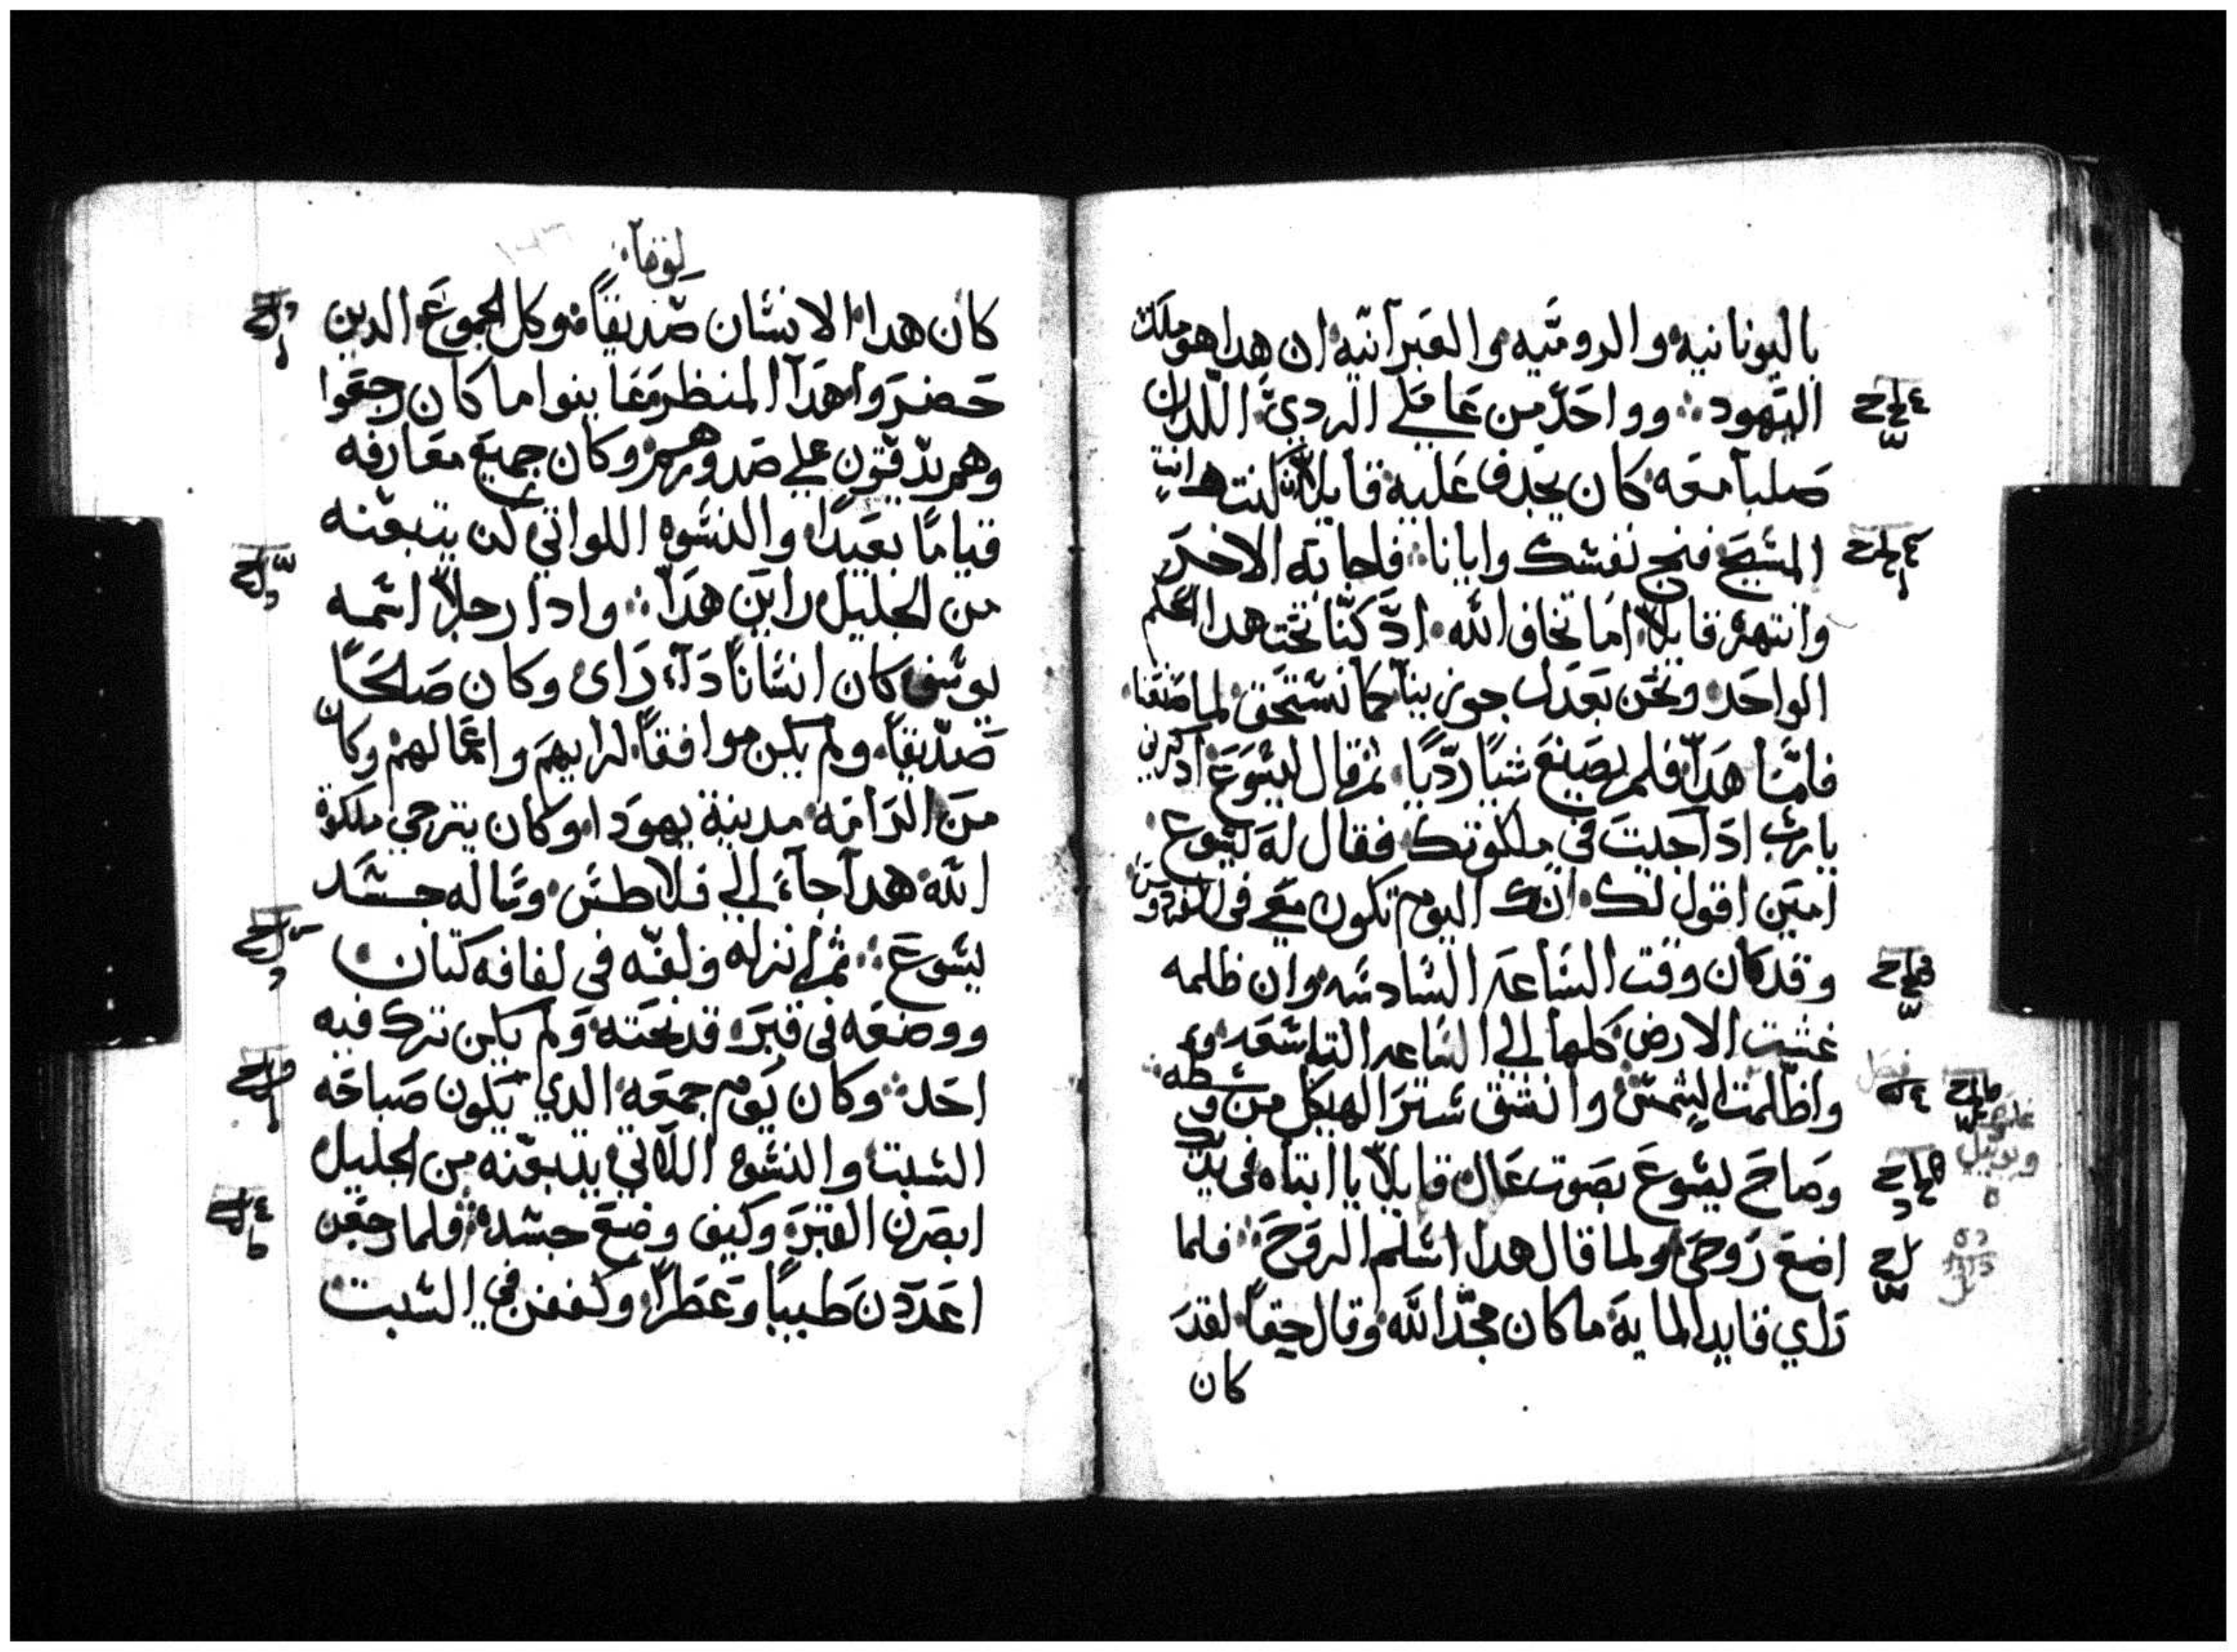 باليونانيه والروميه والعبرانيه ان هدا هو ملك
اليهود ؞ وواحد من عاملي الردي اللدان
صلبا معه كان يجدف عليه قايلا ان كنت انت هو
المشيح فنج نفشك وايانا ؞ فاجابه الاخر
وانتهره قايلا اما تخاف الله اد كنا تحت هدا الحكم
الواحد ونحن بعدل جوزينا كما نشتحق لما صنعنا
فامّا هدا فلم يصنع شيًا ردّيًا ثم قال ليشوع ادكرني
يارب ادا جيت في ملكوتك فقال له يشوع
امين اقول لك انك اليوم تكون معي في الفردوش
وقد كان وقت الشاعه الشادشه وان ظلمه
غشيت الارض كلها الي الشاعه التاشعه
واظلمت الشمش وانشق شتر الهيكل من وشطه
وصاح يشوع بصوت عال قايلا يا ابتاه في يديك
اضع روحي ولما قال هدا اشلم الروح ؞ فلما
راي قايد المايه ما كان مجّد الله وقال حقًا لقد
كان
لوقا
كان هدا الانشان صديقًا وكل الجموع الدين
حضروا هدا المنظر وعاينوا ما كان رجعوا
وهم يدقون علي صدورهم وكان جميع معارفه
قيامًا بعيدًا والنشوه اللواتي كن يتبعنه
من الجليل راين هدا ؞ وادا رجلا اشمه
يوشف كان انشانًا دا راى وكان صالحًا
صدّيقًا ولم يكن موافقًا لرايهم واعمالهم وكان
من الرامه مدينة يهودا وكان يترجي ملكوة
الله هدا جاء الي فلاطش وشاله جشد
يشوع ؞ ثم انزله ولفّه في لفافه كتان
ووضعه في قبر قد نحته ولم يكن ترك فيه
احد ؞ وكان يوم جمعه الدي يكون صباحه
الشبت والنشوه اللاتي يتبعنه من الجليل
ابصرن القبر وكيف وضع جشده ؞ فلما رجعن
اعددن طيبًا وعطرًا وكففن في الشبت